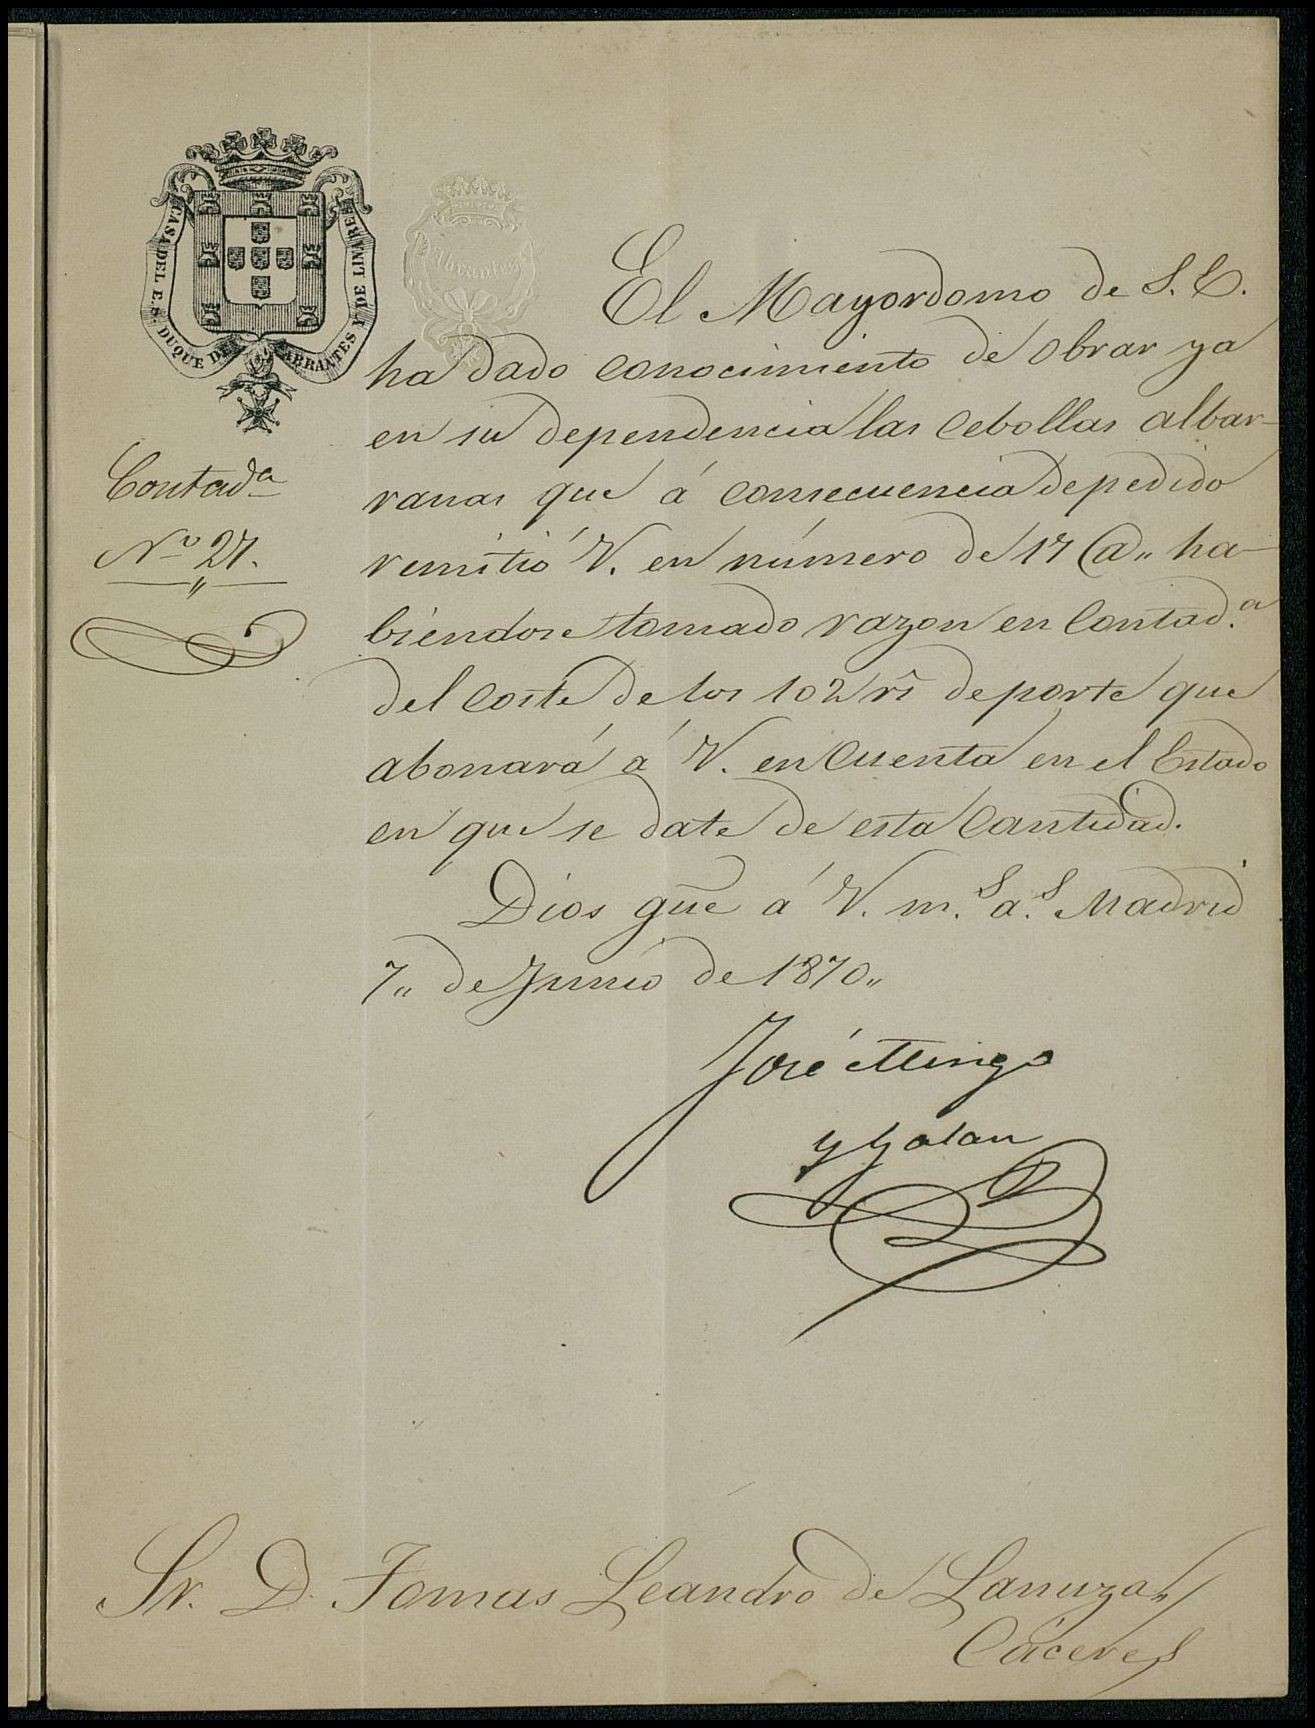 CASA DEL E. S. DUQUE DE ABRANTES Y DE LINARES
Abrantes
Contad.ª
N.º 27.
El Mayordomo de S. E.
ha dado conocimiento de obrar ya
en su dependencia las Cebollas albar-
ranas que á consecuencia de pedido
remitió V. en número de 17 @,, ha-
biendose tomado razon en Contad.ª
del coste de los 102 r.s de porte que
abonará á V. en Cuenta en el Estado
en que se date de esta Cantidad.
Dios gue á V. m.s a.s Madrid
7,, de Junio de 1870,,
José Mingo
y Galan
Sr. D. Tomas Leandro de Lanuza,,
Cáceres